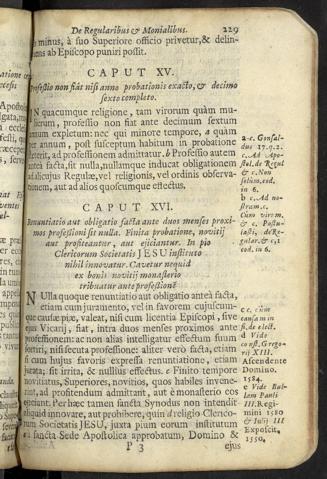 De Regularibus & Monialibus. 229
minus, à suo Superiore officio privetur, & delin-
ens ab Episcopo puniri possit.
CAPUT XV.
Professio non fiat nisi anno probationis exacto, & decimo
sexto completo.
IN quacumque religione, tam virorum quàm mu-
lierum, professio non fiat ante decimum sextum
annum expletum: nec qui minore tempore, a quàm
per annum, post susceptum habitum in probatione
steterit, ad professionem admittatur. b Professio autem
antea facta, sit nulla, nullamque inducat obligationem
ad alicujus Regulæ, vel religionis, vel ordinis observa-
tionem, aut ad alios quoscumque effectus.
CAPUT XVI.
Renuntiatio aut obligatio facta ante duos menses proxi-
mos professioni sit nulla. Finita probatione, novitij
aut profiteantur, aut ejiciantur. In pio
Clericorum Societatis JESU instituto
nihil innovatur. Cavetur nequid
ex bonis novitij monasterio
tribuatur ante professionē
NUlla quoque renuntiatio aut obligatio anteà facta,
etiam cum juramento, vel in favorem cujuscum-
que causæ piæ, valeat, nisi cum licentia Episcopi, sive
ejus Vicarij, fiat, intra duos menses proximos ante
professionem: ac non alias intelligatur effectum suum
sortiri, nisi secuta professione: aliter verò facta, etiam
si cum hujus favoris expressa renuntiatione, etiam
jurata; sit irrita, & nullius effectus. e Finito tempore
novitiatus, Superiores, novitios, quos habiles invene-
rint, ad profitendum admittant, aut è monasterio eos
ejiciant. Per hæc tamen sancta Synodus non intendit
aliquid innovare, aut prohibere, quin d religio Clerico-
rum Societatis JESU, juxta pium eorum institutum
à sancta Sede Apostolica approbatum, Domino &
P 3 ejus
a c. Gonsal-
dus 17. q. 2.
c. Ad Apo-
stol. de Regul
& c. Non
solum. eod.
in 6.
b c. Ad no-
stram. c.
Cum virum,
& c. Postu-
lasti, de Re-
gular. & c. 1
eod. in 6.
c c. cum
causam in
fi. de elect.
d Vide
const. Grego-
rij XIII.
Ascendente
Domino.
1584.
e Vide Bul-
lam Pauli
III. Regi-
mini 1540
& Iulij III
Exposcit,
1550.